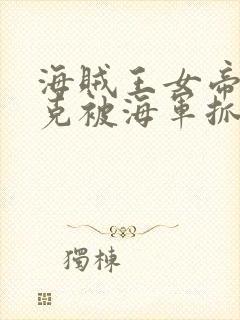 海賊王女帝
克被海軍抓
獨棟